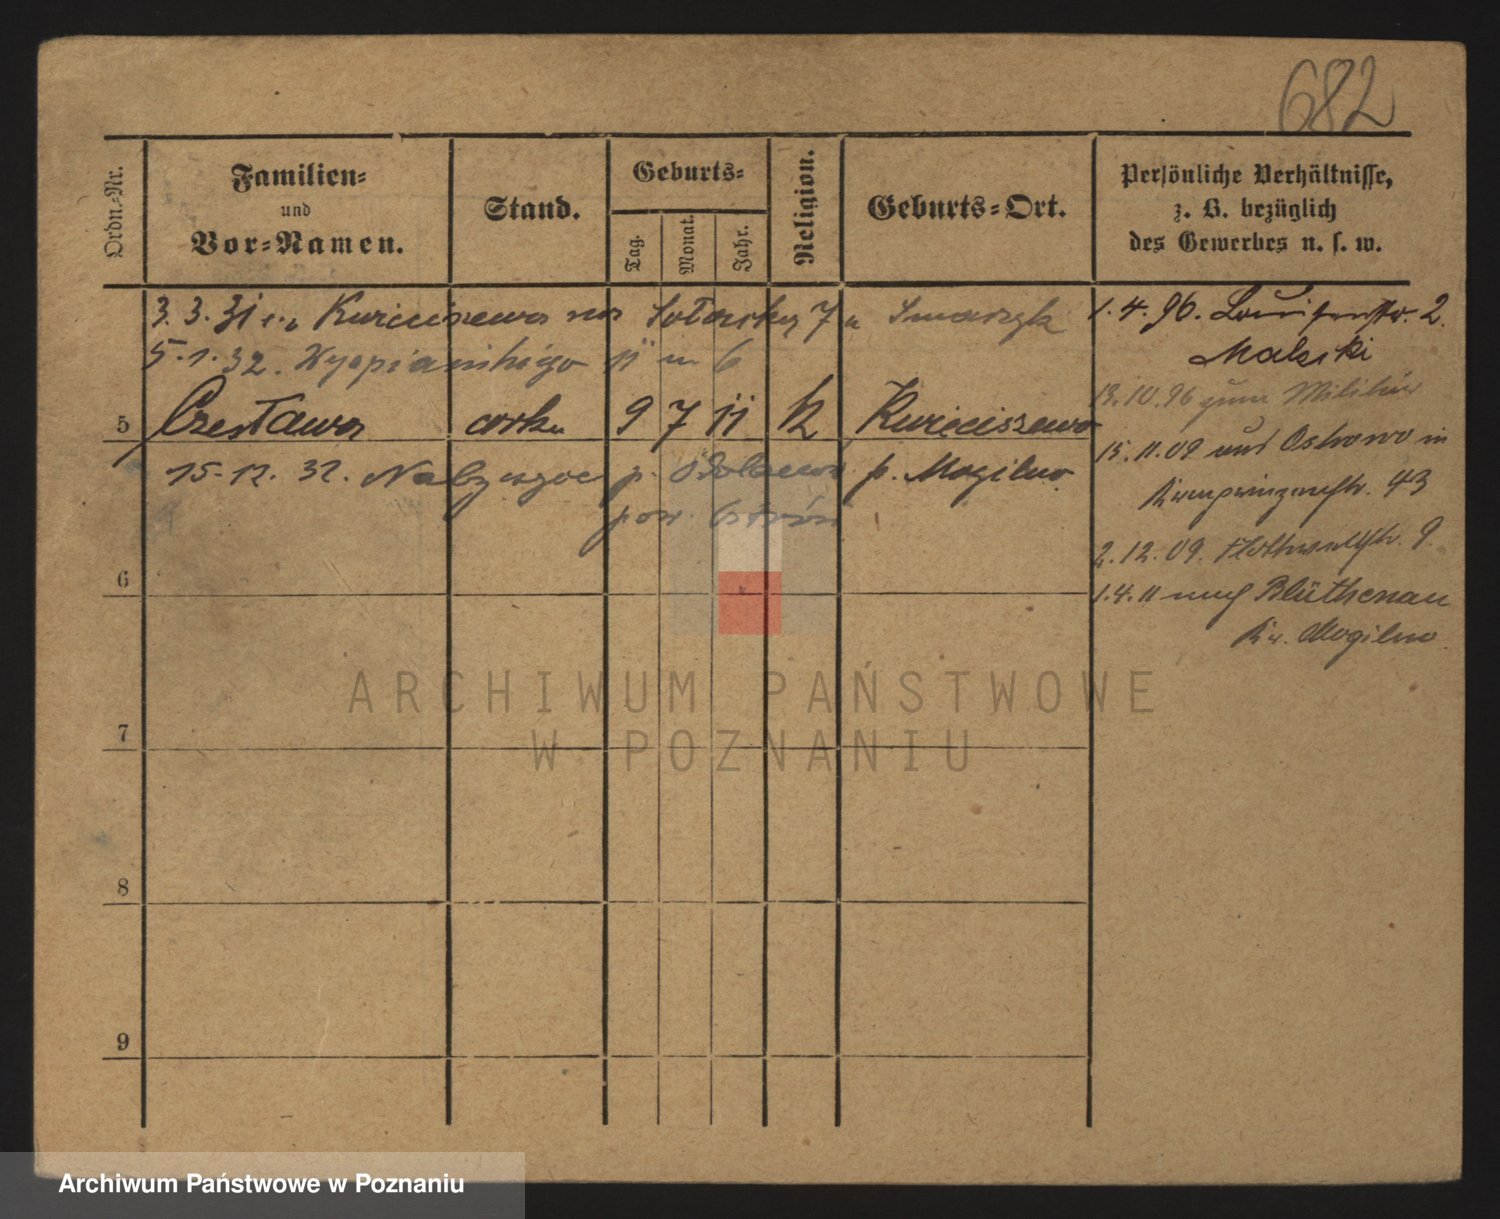 682
Ordn.-Nr.
Familien-
und
Vor-Namen.
Stand.
Geburts-
Tag.
Monat.
Jahr.
Religion.
Geburts-Ort.
Persönliche Verhältnisse,
z. B. bezüglich
des Gewerbes u. s. w.
3. 3. 31 Kurieciszewa na Sołacką 7 u Smarzyk
5. 1. 32. Wyspiańskiego 11 m 6
5 Czesława córka 9 7 11 k Kurieciszewo
15. 12. 32. p. Odolanów p. Mogilno
pow. Ostrów
1. 4. 96. Louisenstr. 2.
Malski
13. 10. 96 zum Militär
15. 11. 09 aus Ostrowo in
Kronprinzenstr. 43
2. 12. 09. Flottwellstr. 9.
1. 4. 11 nach Blüthenau
Kr. Mogilno
6
7
8
9
ARCHIWUM PAŃSTWOWE
W POZNANIU
Archiwum Państwowe w Poznaniu